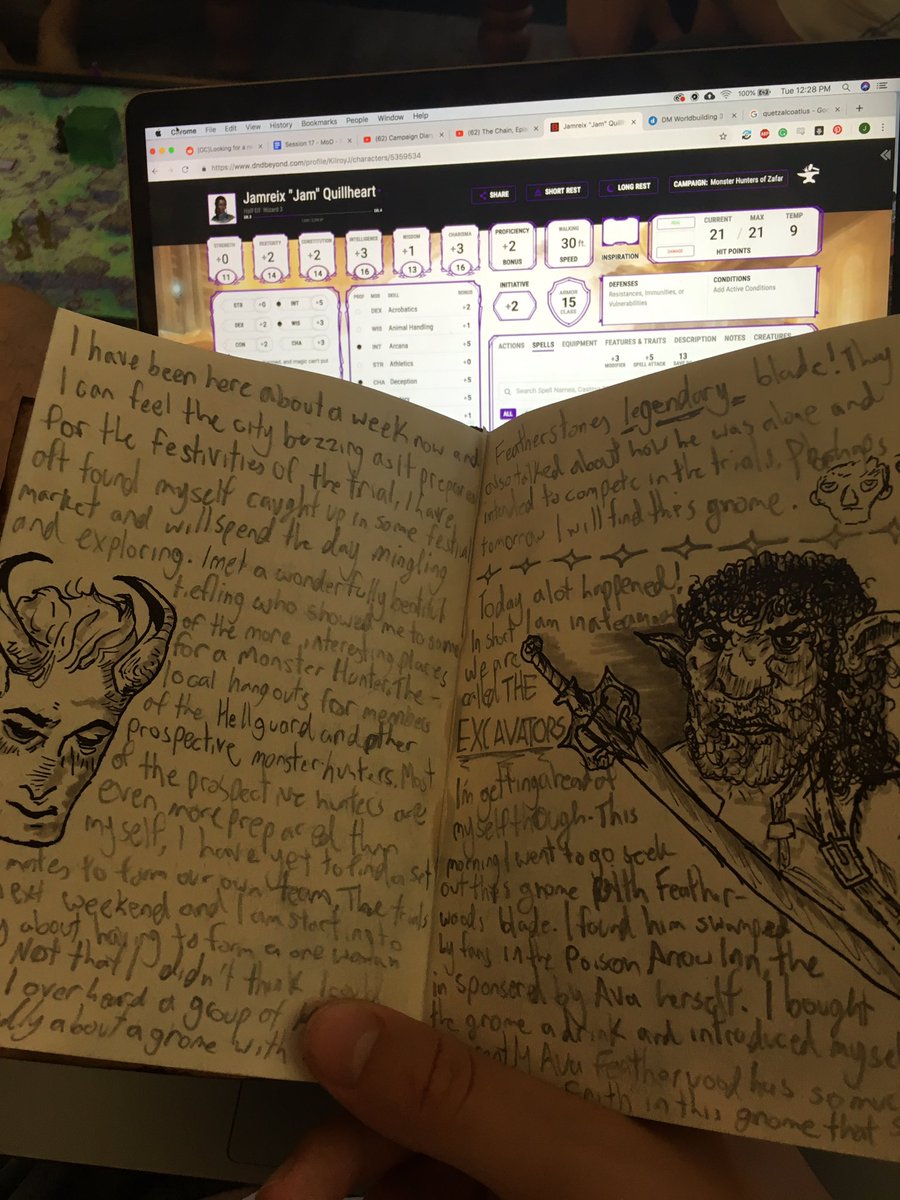 Chrome File Edit View History Bookmarks People Window Help
100% Tue 12:28 PM
[OC]Looking for a
Session 17 - MoD -
(62) Campaign Diar
(62) The Chain, Epi
Jamreix "Jam" Quill
DM Worldbuilding
quetzalcoatlus - Goo
https://www.dndbeyond.com/profile/KilroyJ/characters/5359534
Jamreix "Jam" Quillheart
Half-Elf Wizard 3
SHARE
SHORT REST
LONG REST
CAMPAIGN: Monster Hunters of Zafar
STRENGTH +0 11
DEXTERITY +2 14
CONSTITUTION +2 14
INTELLIGENCE +3 16
WISDOM +1 13
CHARISMA +3 16
PROFICIENCY +2 BONUS
WALKING 30 ft. SPEED
INSPIRATION
HEAL
DAMAGE
CURRENT MAX TEMP
21 / 21 9
HIT POINTS
STR +0 INT +5
DEX +2 WIS +3
CON +2 CHA +3
PROF MOD SKILL BONUS
DEX Acrobatics +2
WIS Animal Handling +1
INT Arcana +5
STR Athletics +0
CHA Deception +5
+5
+1
INITIATIVE
+2
ARMOR 15 CLASS
DEFENSES
Resistances, Immunities, or Vulnerabilities
CONDITIONS
Add Active Conditions
ACTIONS SPELLS EQUIPMENT FEATURES & TRAITS DESCRIPTION NOTES CREATURES
+3 MODIFIER
+5 SPELL ATTACK
13 SAVE
Search Spell Names,
ALL
I have been here about a week now and
I can feel the city buzzing as it prepares
for the festivities of the trial, I have
oft found myself caught up in some festival
market and will spend the day mingling
and exploring. I met a wonderfully beatiful
tiefling who showed me to some
of the more interesting places
for a Monster Hunter. The-
local hangouts for members
of the Hellguard and other
prospective monster hunters. Most
of the prospective hunters are
even more prepared than
myself, I have yet to find a set
mates to form our own team. The trials
next weekend and I am starting to
about having to form a one woman
Not that I didn't think I could
I over heard a group of
about a gnome with
Featherstones legendary blade! They
also talked about how he was alone and
intended to compete in the trials. Perhaps
tomorrow I will find this gnome.
Today, a lot happened!
In short I am in a team
we are
called THE
EXCAVATORS
I'm getting ahead of
myself though. This
morning I went to go seek
out this gnome with Feather-
woods blade. I found him swamped
by fans in the Poison Arrow Inn, the
in sponsered by Ava herself. I bought
the gnome a drink and introduced myself
Ava Featherwood has so much
faith in this gnome that